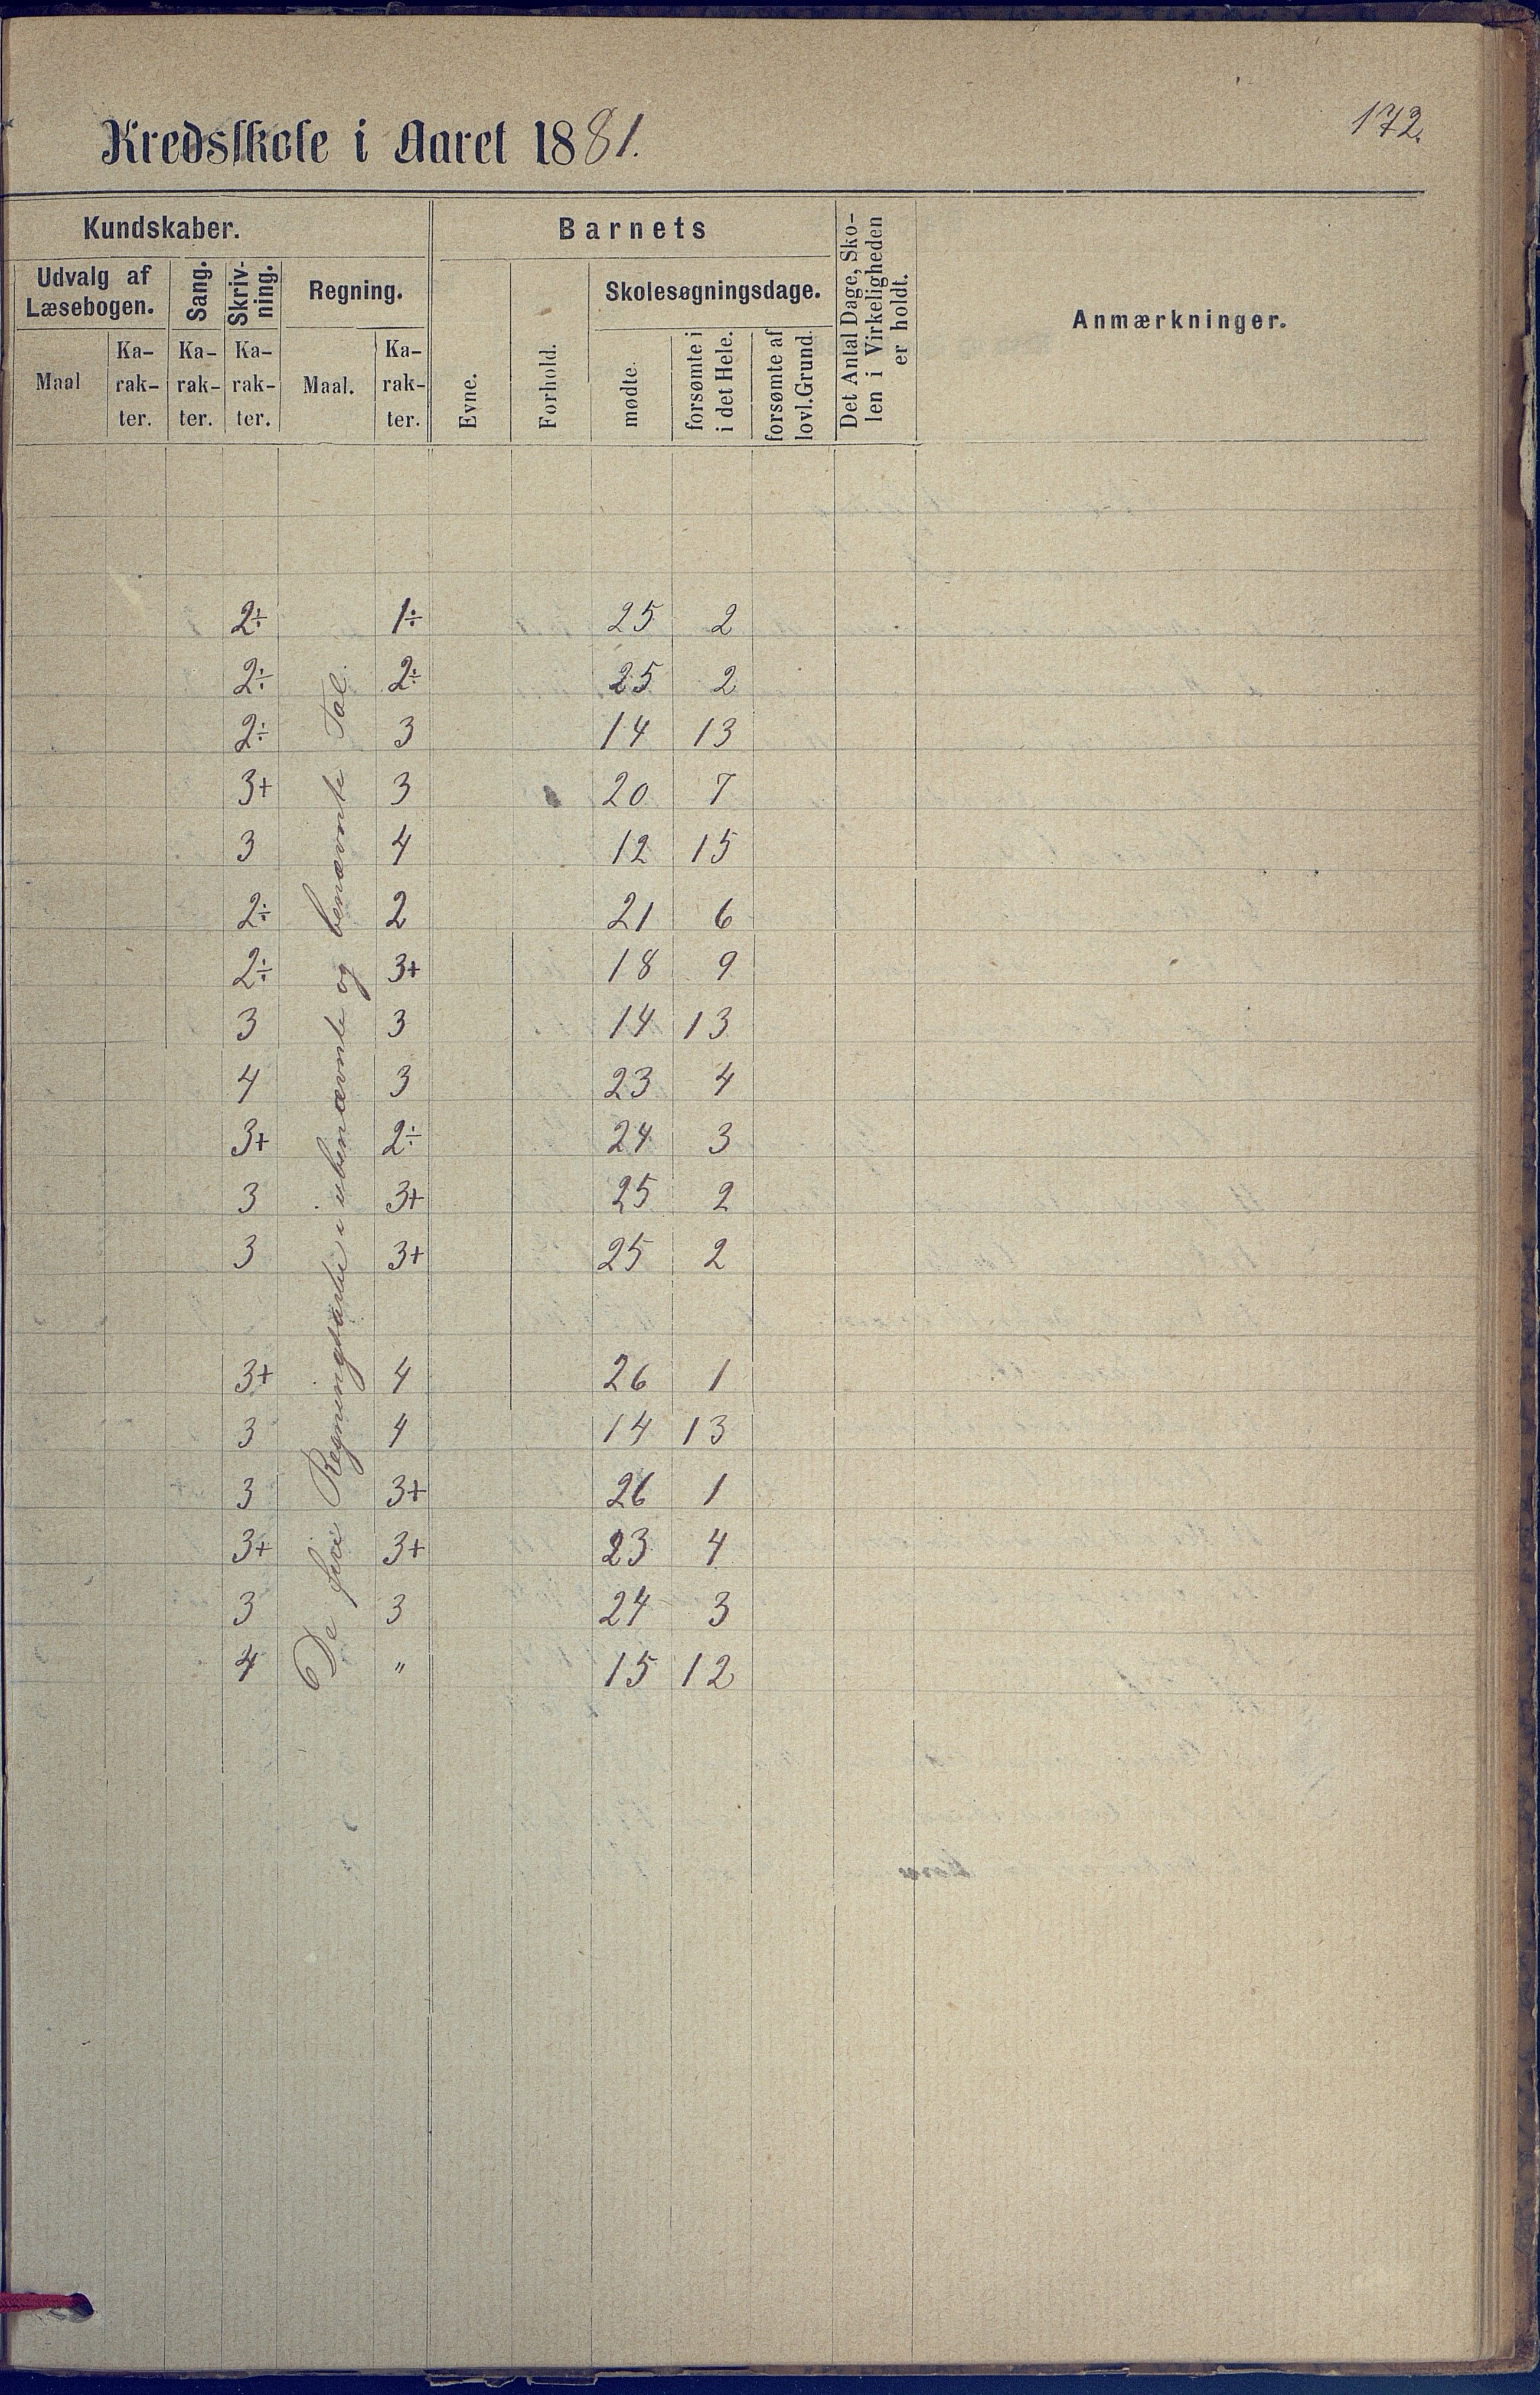 172.
Kredsskole i Aaret 1881.
Kundskaber.
Barnets
Det Antal Dage, Sko-
len i Virkeligheden
er holdt.
Anmærkninger.
Udvalg af
Læsebogen.
Sang.
Skriv-
ning.
Regning.
Evne.
Forhold.
Skolesøgningsdage.
Maal
Ka-
rak-
ter.
Ka-
rak-
ter.
Ka-
rak-
ter.
Maal.
Ka-
rak-
ter.
mødte.
forsømte i
i det Hele.
forsømte af
lovl. Grund.
De fire Regningsarter i ubenævnte og benævnte Tal.
2÷ 1÷ 25 2
2÷ 2÷ 25 2
2÷ 3 14 13
3+ 3 20 7
3 4 12 15
2÷ 2 21 6
2÷ 3+ 18 9
3 3 14 13
4 3 23 4
3+ 2÷ 24 3
3 3+ 25 2
3 3+ 25 2
3+ 4 26 1
3 4 14 13
3 3+ 26 1
3+ 3+ 23 4
3 3 24 3
4 " 15 12